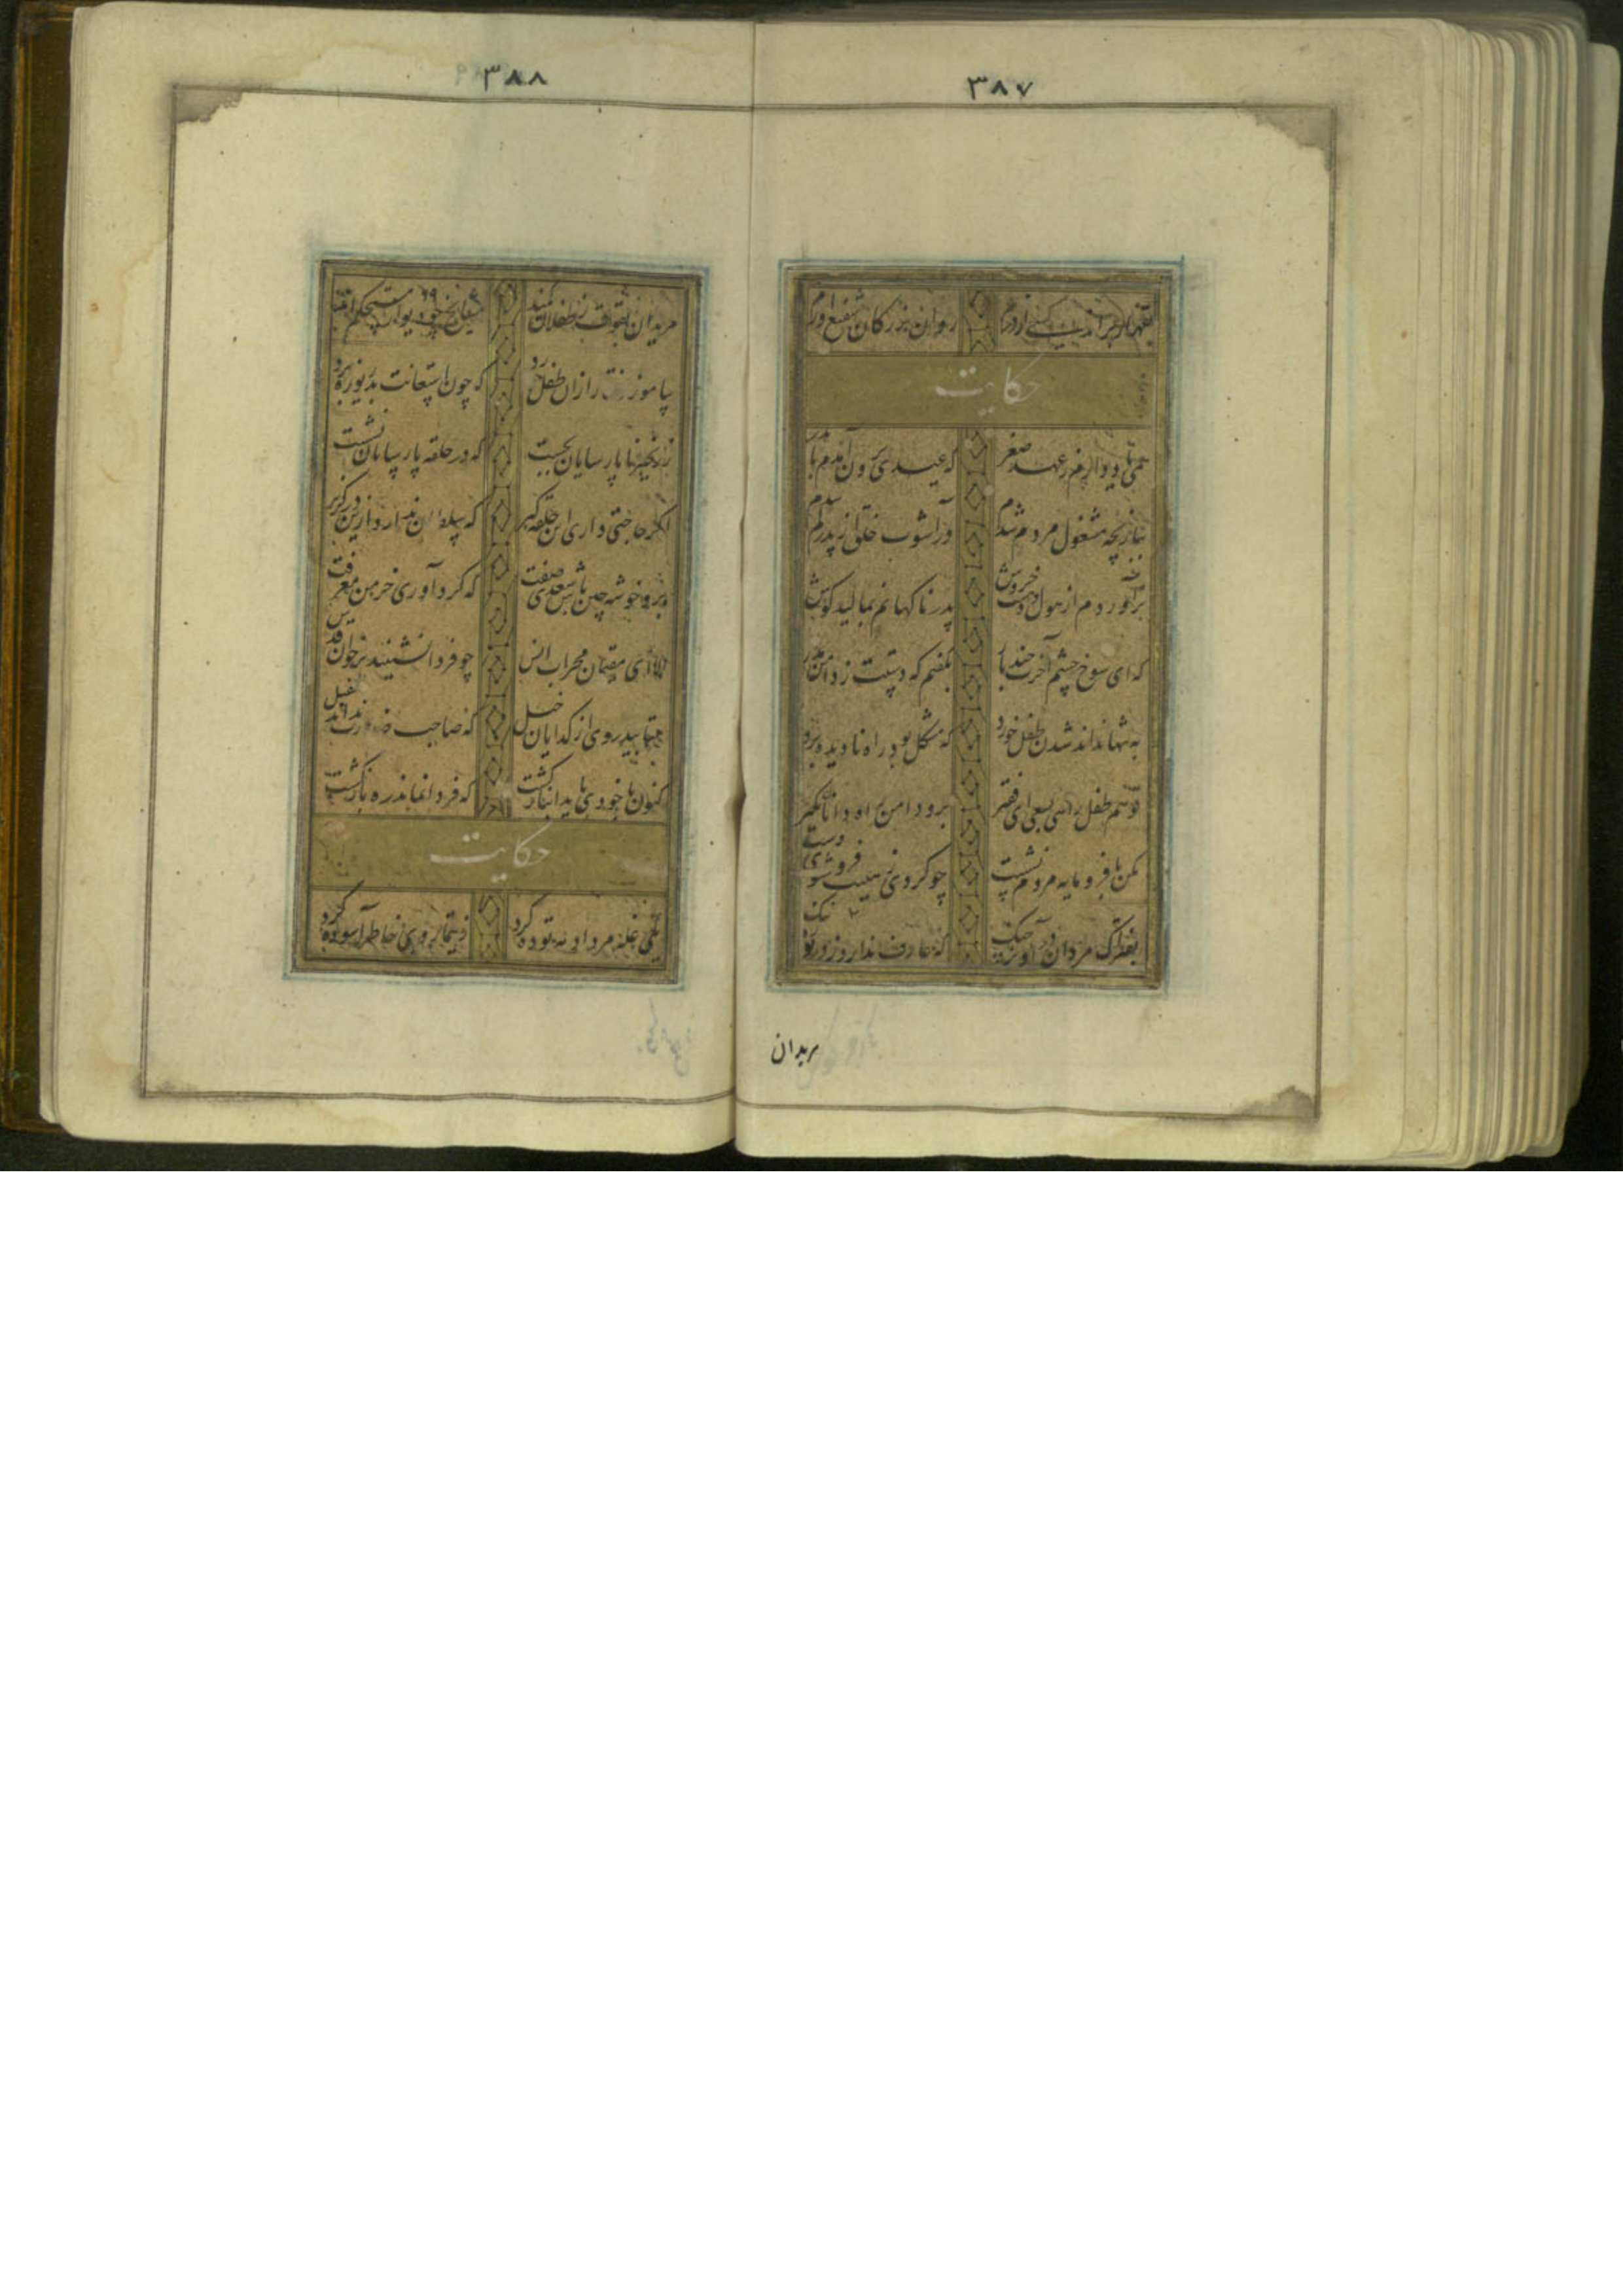 ۳۸۷
بقهر ار براند کسی از درم روان بزرگان شفیع آورم
حکایت
همی یاد دارم ز عهد صغر که عیدی برون آمدم با پدر
ببازیچه مشغول مردم شدم در آشوب خلق از پدر گم شدم
برآوردم از هول و دهشت خروش پدر ناگهانم بمالید گوش
که ای شوخ چشم آخرت چند بار بگفتم که دستت ز دامن مدار
به تنها نداند شدن طفل خورد که مشکل بود راه نادیده برد
تو هم طفل راهی بسعی ای فقیر برو دامن راه دانان بگیر
مکن با فرومایه مردم نشست چو کردی ز هیبت فروشوی دست
بفتراک مردان درآویز چنگ که عارف ندارد ز دریوزه ننگ
مریدان
۳۸۸
مریدان بقوت ز طفلان کمند مشایخ چو دیوار مستحکم اند
بیاموز رفتار ازان طفل خرد که چون استعانت بدیوار برد
ز زنجیر ناپارسایان بجست که در حلقه پارسایان نشست
اگر حاجتی داری این حلقه گیر که سلطان ندارد ازین در گزیر
برو خوشه چین باش سعدی صفت که گرد آوری خرمن معرفت
الا ای مقیمان محراب انس چو فردا نشینید بر خوان قدس
متابید روی از گدایان خیل که صاحب طفیل
کنون با خرد باید انباز گشت که فردا نماند ره بازگشت
حکایت
یکی غله مرداد مه توده کرد ز تیمار وی خاطر آسوده کرد